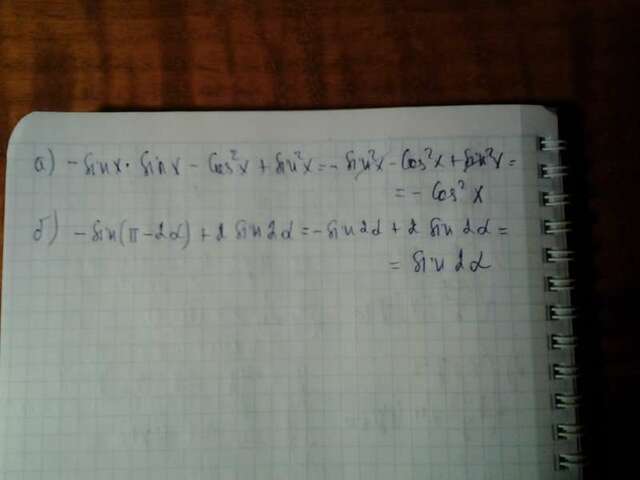 а) -sin x · sin x - cos²x + sin²x = - sin²x - cos²x + sin²x =
= - cos² x
б) -sin(π-2α) + 2 sin 2α = -sin 2α + 2 sin 2α =
= sin 2α